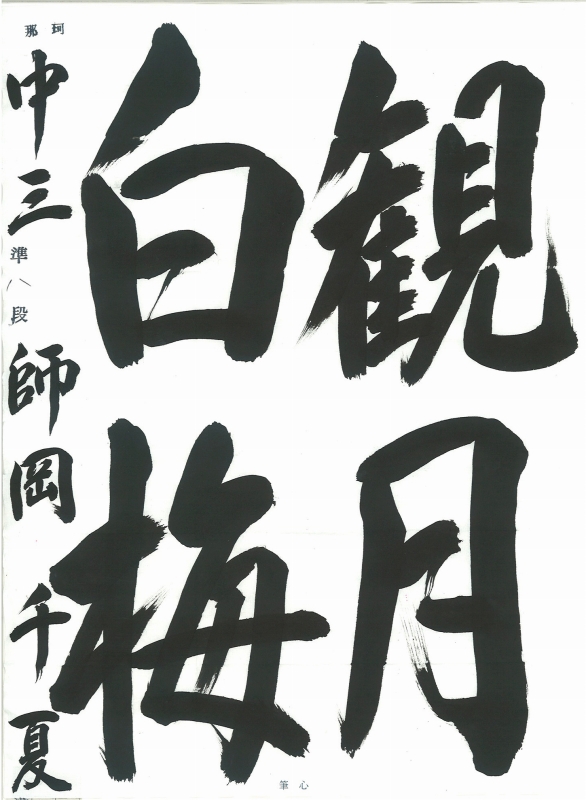 観月
白梅
珂那
中三 準八段 師岡千夏
心筆